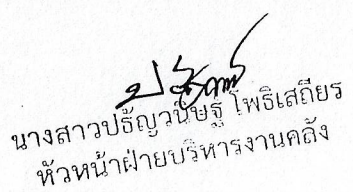 นางสาวปริญวนิษฐ์ โพธิเสถียร
หัวหน้าฝ่ายบริหารงานคลัง